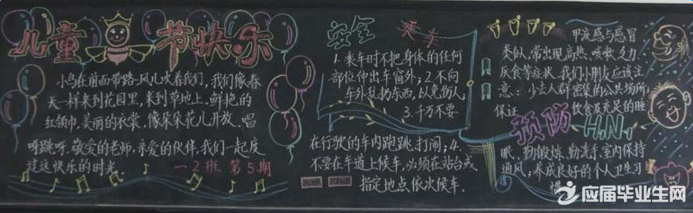 儿童节快乐
小鸟在前面带路,风儿吹着我们,我们像春
天一样来到花园里,来到草地上。鲜艳的
红领巾,美丽的衣裳,像朵朵花儿开放。唱
呀跳呀,敬爱的老师,亲爱的伙伴,我们一起度
过这快乐的时光。
一2班 第5期
安全乘车
1.乘车时不把身体的任何
部位伸出车窗外;2.不向
车外乱扔东西,以免伤人;
3.千万不要
在行驶的车内跑跳、打闹;4.
不要在车道上候车,必须在站台或
指定地点依次候车。
甲流感与感冒
类似,常出现高热、咳嗽、乏力、
厌食等症状。我们小朋友应该注
意:少去人群密集的公共场所;
保证饮食及充足的睡
预防H1N1
眠、勤锻炼、勤洗手;室内保持
通风,养成良好的个人卫生习
惯。
应届毕业生网